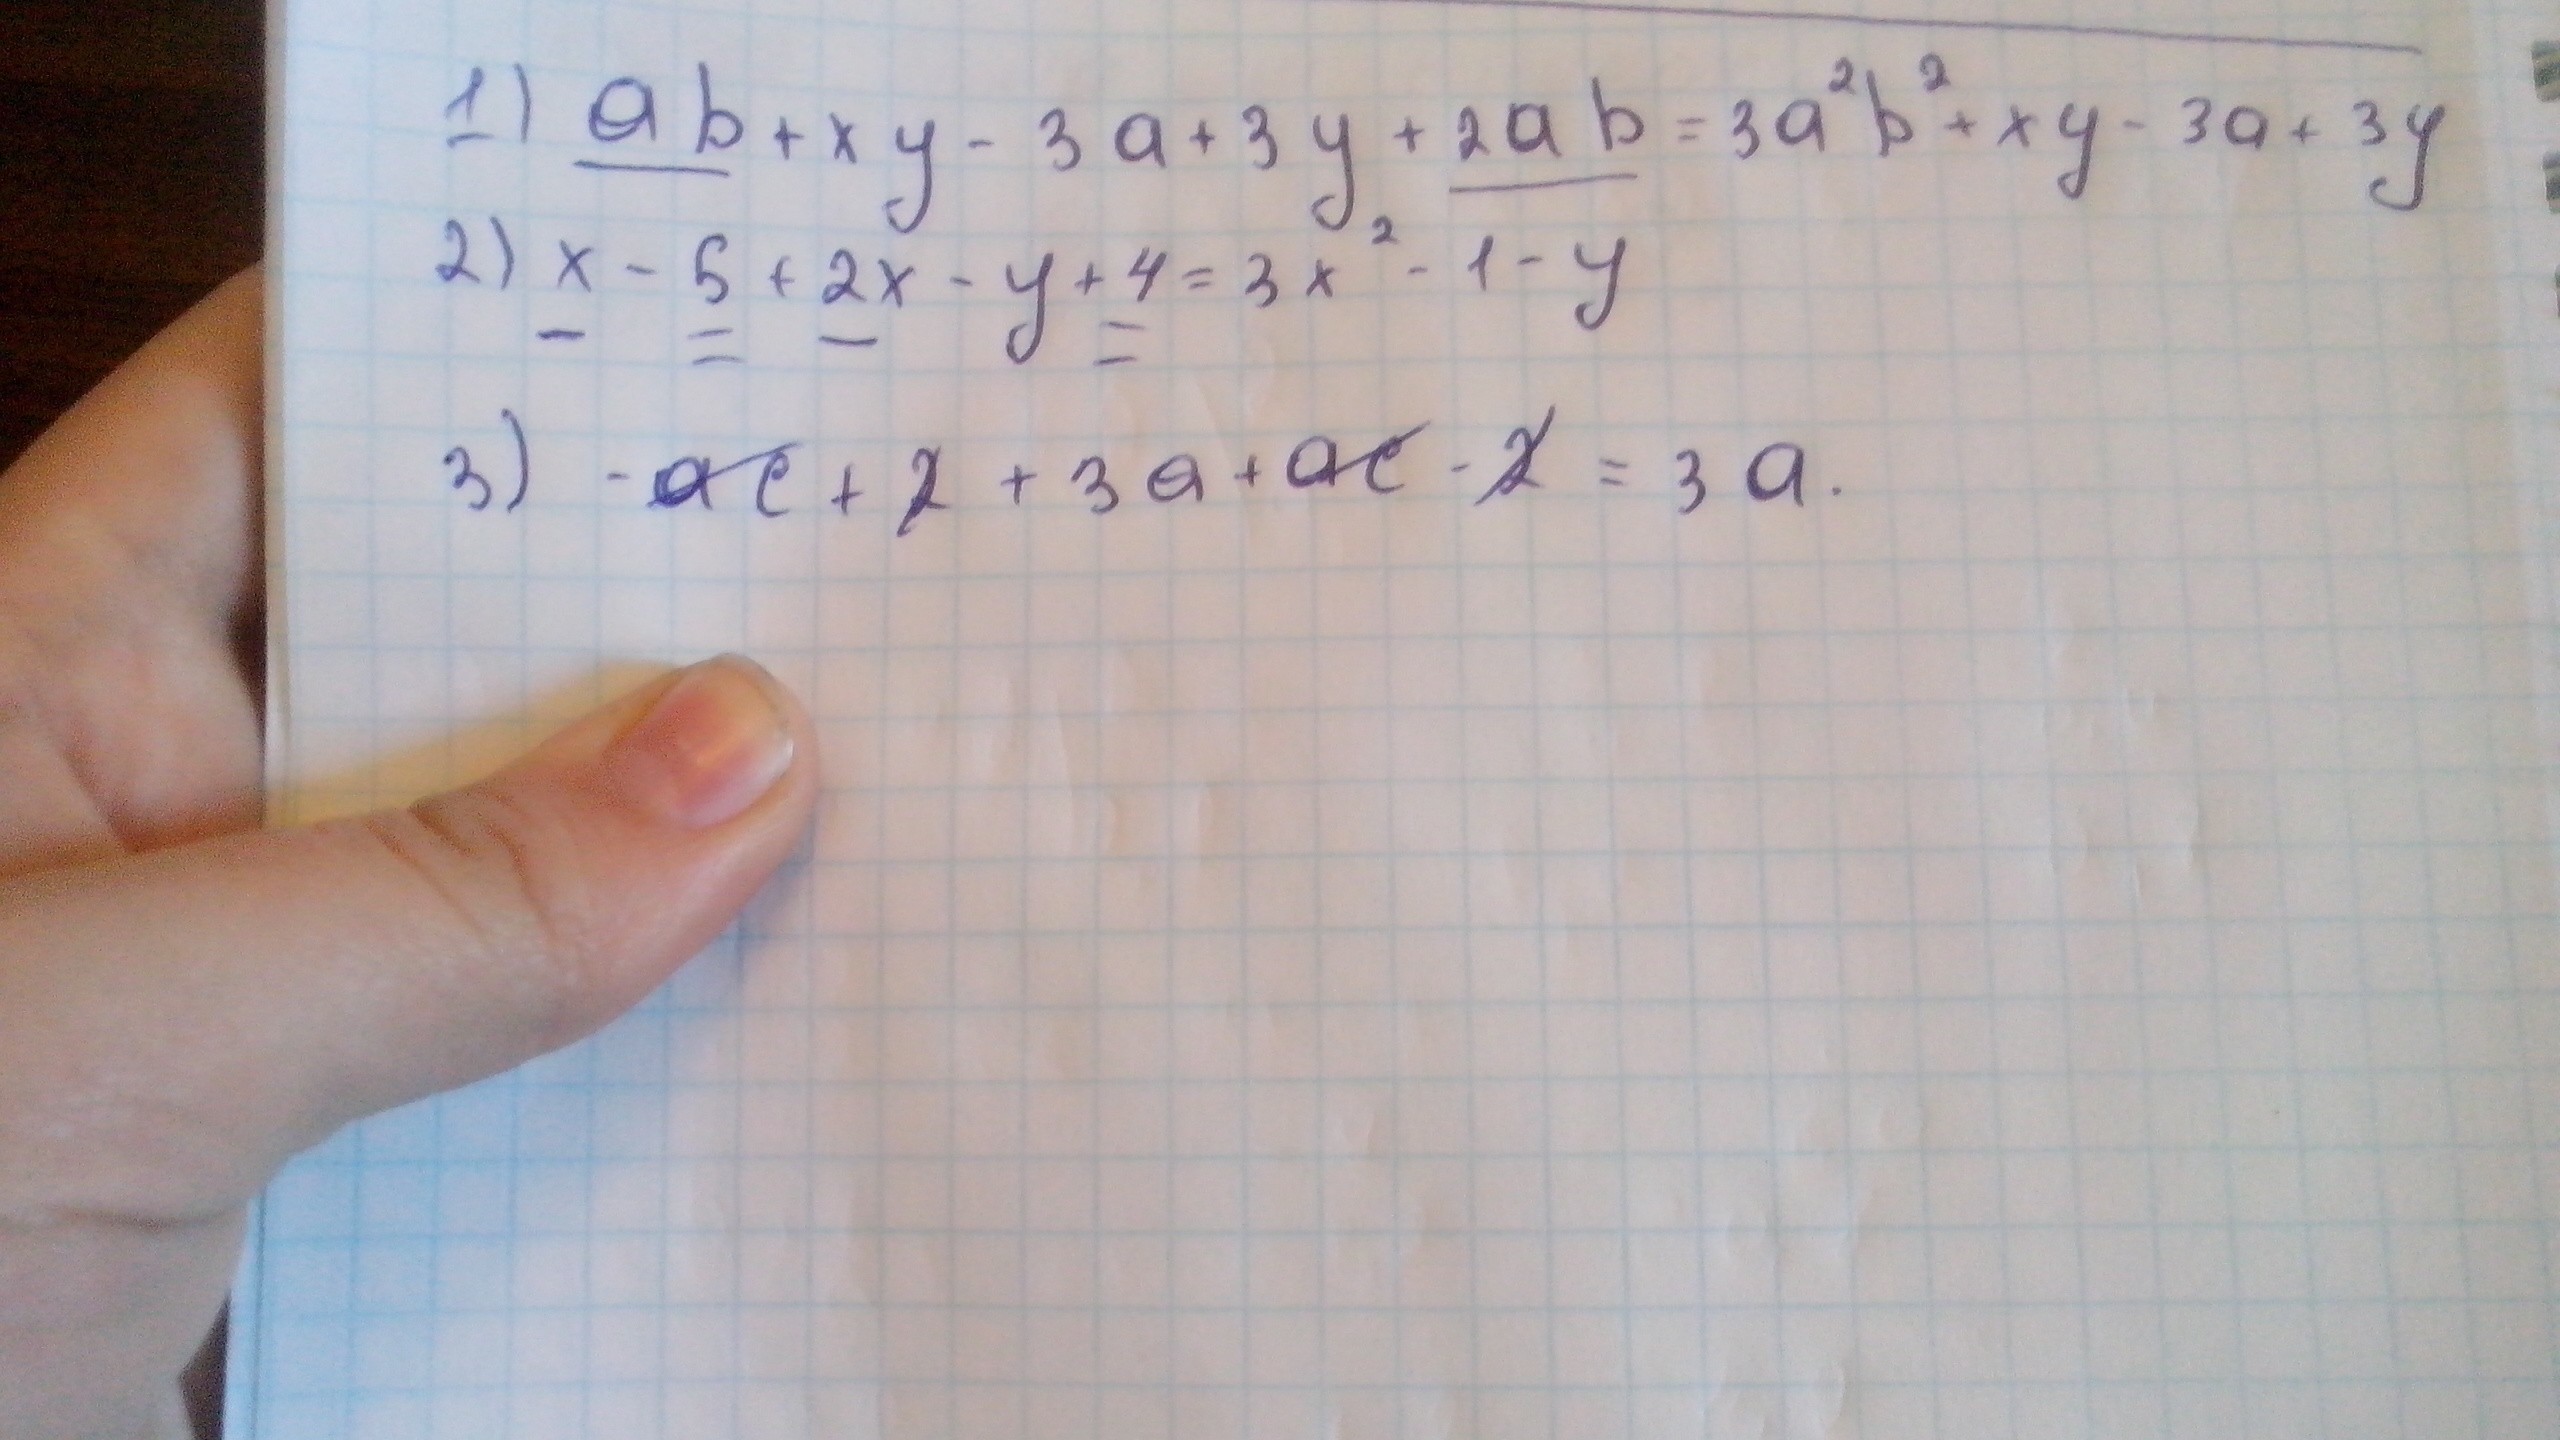 1) ab + xy - 3a + 3y + 2ab = 3a²b² + xy - 3a + 3y
2) x - 5 + 2x - y + 4 = 3x² - 1 - y
3) - ac + 2 + 3a + ac - 2 = 3a.